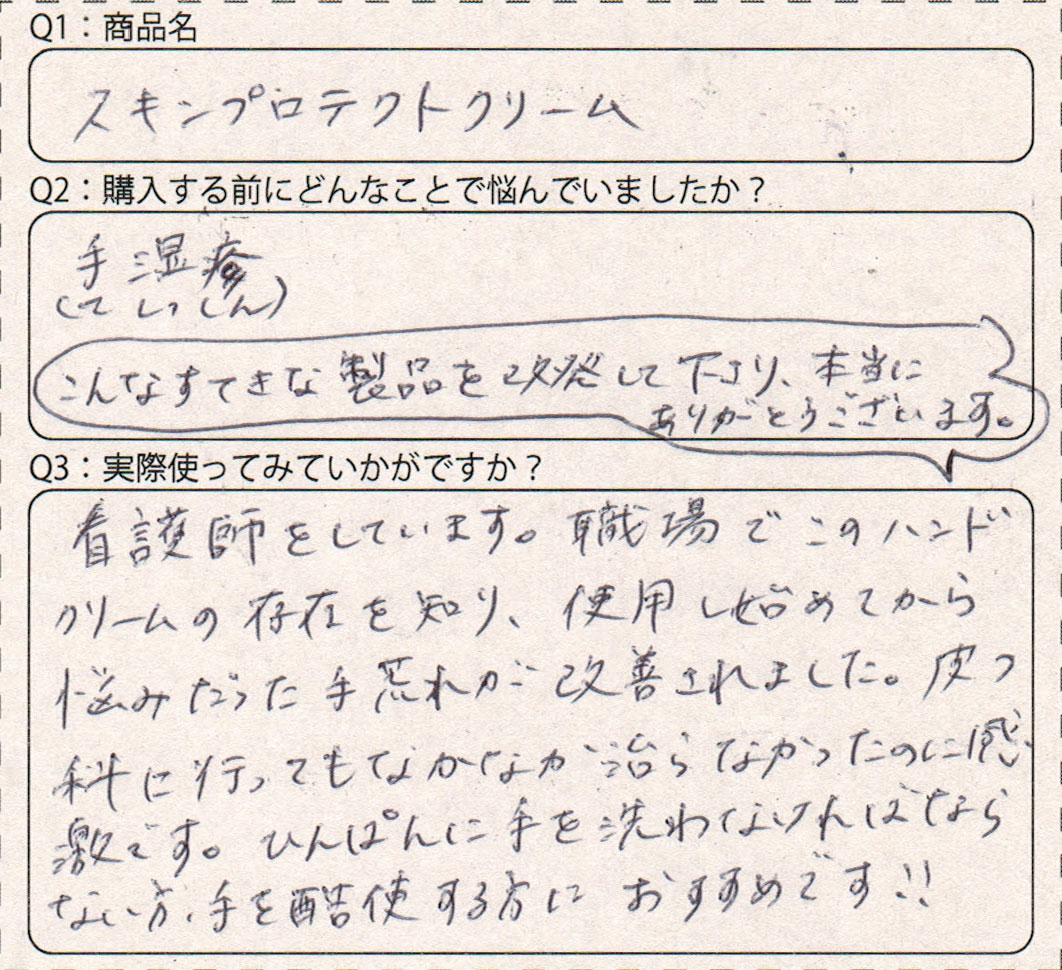 Q1：商品名
スキンプロテクトクリーム
Q2：購入する前にどんなことで悩んでいましたか？
手湿疹
(てしっしん)
こんなすてきな製品を改発して下さり、本当に
ありがとうございます。
Q3：実際使ってみていかがですか？
看護師をしています。職場でこのハンド
クリームの存在を知り、使用し始めてから
悩みだった手荒れが改善されました。皮フ
科に行ってもなかなか治らなかったのに感
激です。ひんぱんに手を洗わなければなら
ない方、手を酷使する方におすすめです!!